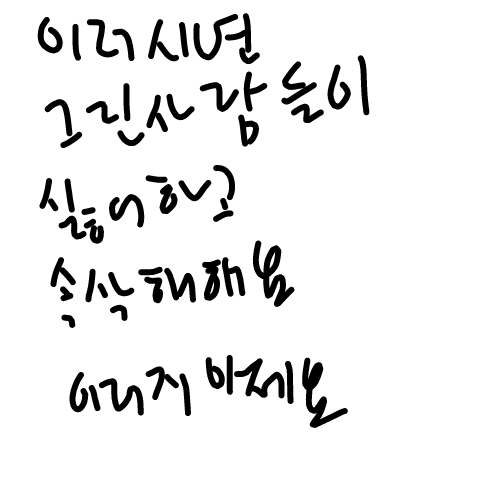 이러시면
그린사람들이
싫어하고
속삭해해요
이러지마세요